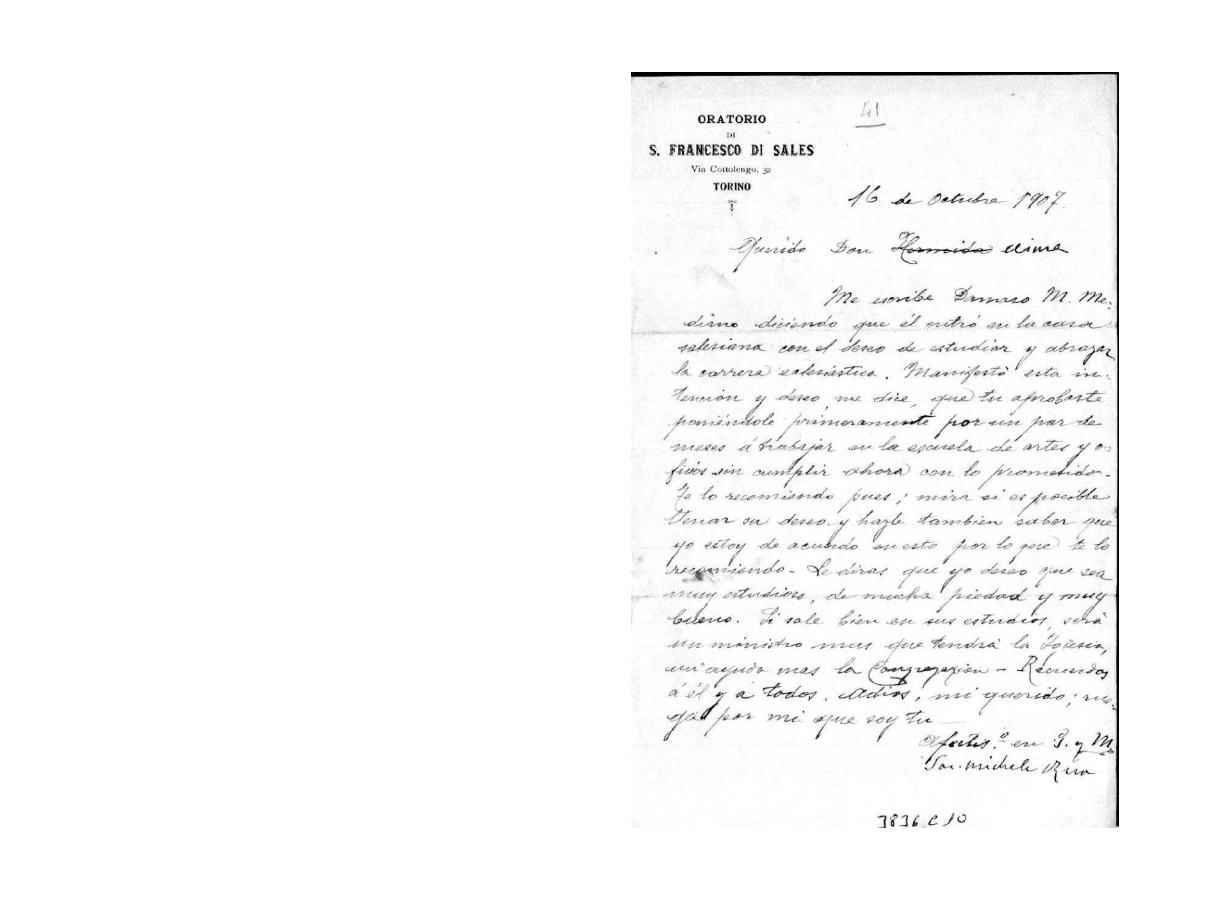 41
ORATORIO
DI
S. FRANCESCO DI SALES
Via Cottolengo, 32
TORINO
16 de Octubre 1907.
Querido Don Hermida Aime
Me escribe Damaso M. Me-
dino diciendo que él entró en la casa
salesiana con el deseo de estudiar y abrazar
la carrera eclesiástica. Manifestó esta in-
tención y deseo, me dice, que tu aprobaste
poniéndole primeramente por un par de
meses á trabajar en la escuela de artes y o-
ficios sin cumplir ahora con lo prometido-
Te lo recomiendo pues; mira si es posible
llenar su deseo y hazle tambien saber que
yo estoy de acuerdo en esto por lo que te lo
recomiendo- Le diras que yo deseo que sea
muy estudioso, de mucha piedad y muy
bueno. Si sale bien en sus estudios, será
un ministro mas que tendrá la Iglesia,
un ayuda mas la Congregazion - Recuerdos
á él y á todos. Adios, mi querido; rue-
ga por mi que soy tu
Afectis.º en J. y M.
Sac. Michele Rua
3836 C 10